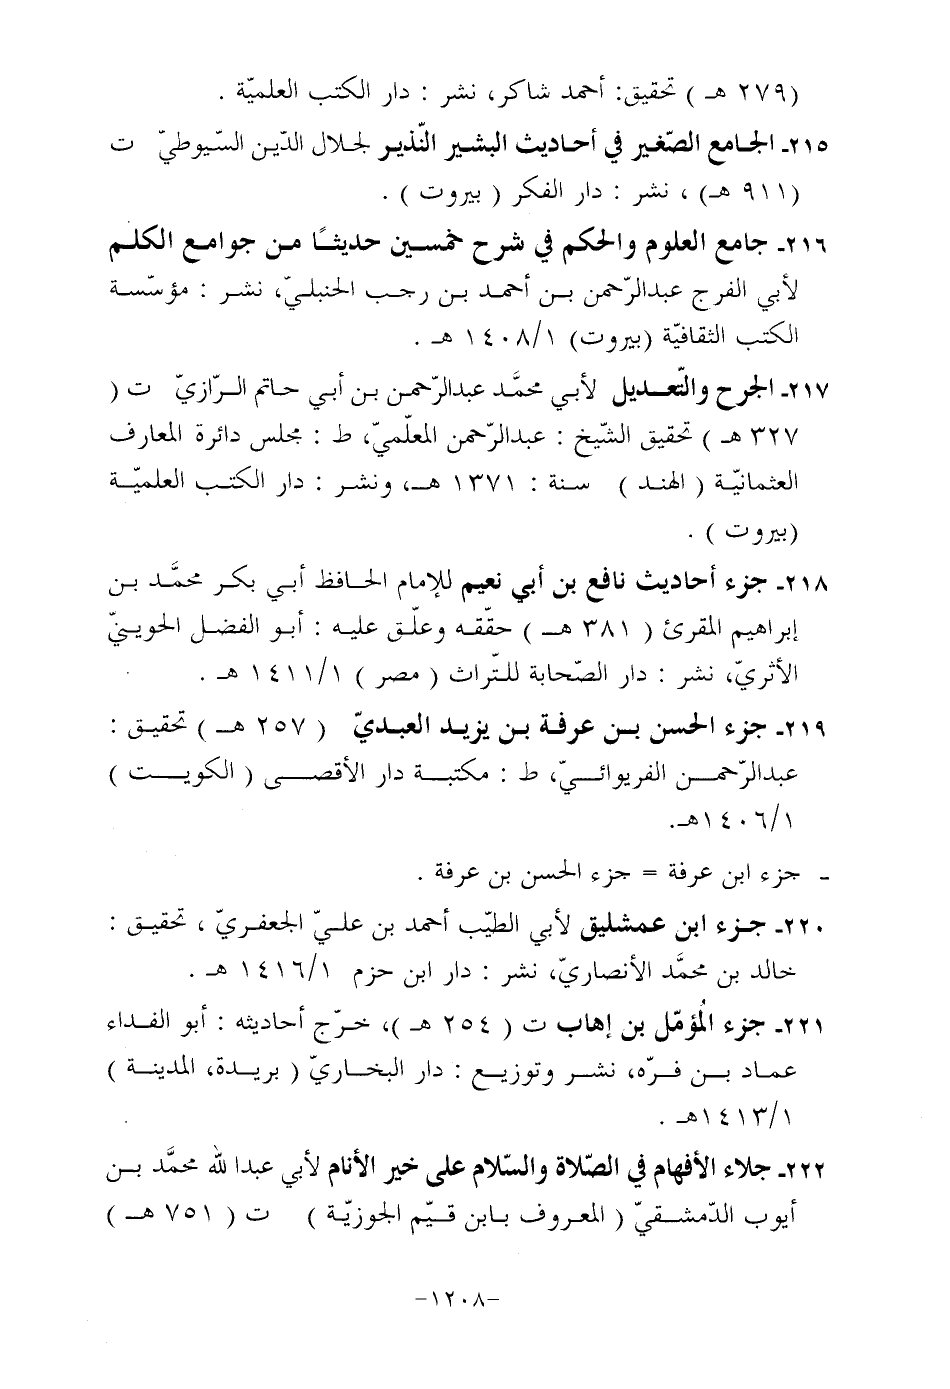 (٢٧٩ هـ ) تحقيق: أحمد شاكر، نشر : دار الكتب العلميّة .
٢١٥ـ الجامع الصّغير في أحاديث البشير النّذير لجلال الدّين السّيوطيّ ت
(٩١١ هـ) ، نشر : دار الفكر ( بيروت ) .
٢١٦ـ جامع العلوم والحكم في شرح خمسين حديثًا من جوامع الكلم
لأبي الفرج عبدالرّحمن بن أحمد بن رجب الحنبليّ، نشر : مؤسّسة
الكتب الثقافيّة (بيروت) ١٤٠٨/١ هـ .
٢١٧ـ الجرح والتّعديل لأبي محمَّد عبدالرّحمن بن أبي حاتم الرّازيّ ت (
٣٢٧ هـ ) تحقيق الشّيخ : عبدالرّحمن المعلّميّ، ط : مجلس دائرة المعارف
العثمانيّة ( الهند ) سنة : ١٣٧١ هـ، ونشر : دار الكتب العلميّة
(بيروت ) .
٢١٨ـ جزء أحاديث نافع بن أبي نعيم للإمام الحافظ أبي بكر محمَّد بن
إبراهيم المقرئ ( ٣٨١ هـ ) حقّقه وعلّق عليه : أبو الفضل الحوينيّ
الأثريّ، نشر : دار الصّحابة للتّراث ( مصر ) ١٤١١/١ هـ .
٢١٩ـ جزء الحسن بن عرفة بن يزيد العبديّ ( ٢٥٧ هـ ) تحقيق :
عبدالرّحمن الفريوائيّ، ط : مكتبة دار الأقصى ( الكويت )
١٤٠٦/١هـ.
- جزء ابن عرفة = جزء الحسن بن عرفة .
٢٢٠ـ جزء ابن عمشليق لأبي الطيّب أحمد بن عليّ الجعفريّ ، تحقيق :
خالد بن محمَّد الأنصاريّ، نشر : دار ابن حزم ١٤١٦/١ هـ .
٢٢١ـ جزء المُؤمّل بن إهاب ت ( ٢٥٤ هـ )، خرّج أحاديثه : أبو الفداء
عماد بن فرّه، نشر وتوزيع : دار البخاريّ ( بريدة، المدينة )
١٤١٣/١هـ .
٢٢٢ـ جلاء الأفهام في الصّلاة والسّلام على خير الأنام لأبي عبدا لله محمَّد بن
أيوب الدّمشقيّ ( المعروف بابن قيّم الجوزيّة ) ت ( ٧٥١ هـ )
-١٢٠٨-